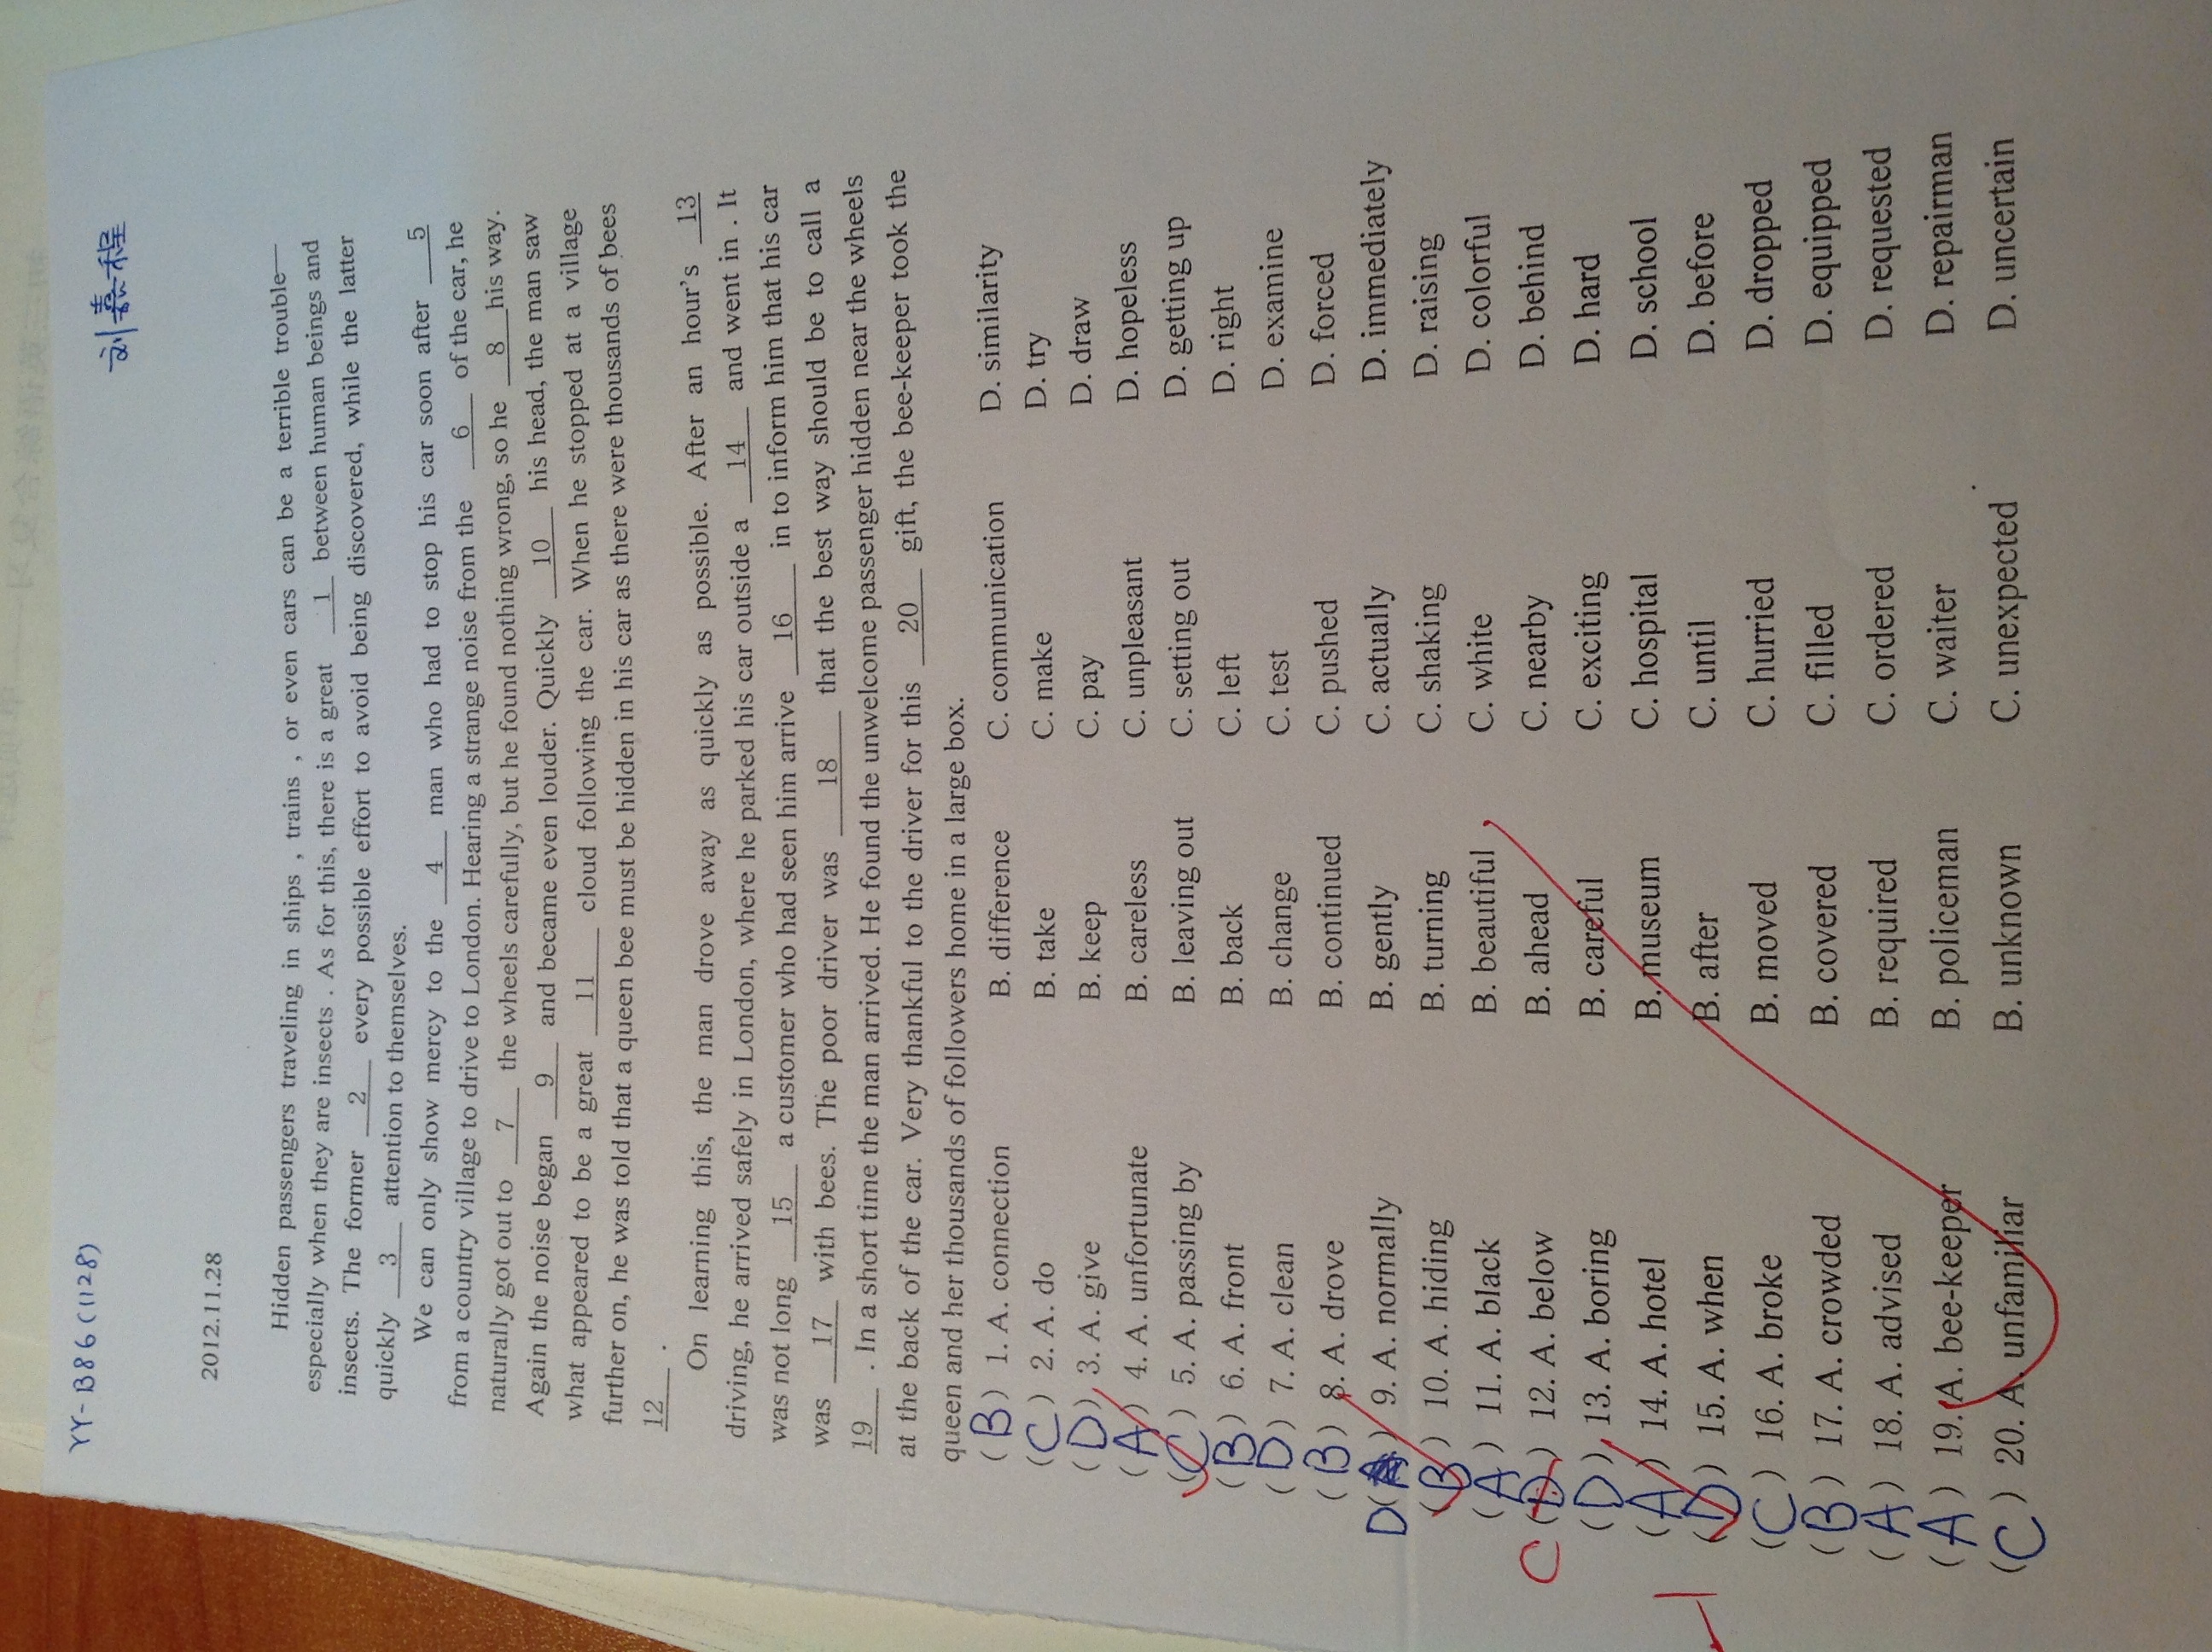 YY-B86(1128)
刘嘉程
2012.11.28
Hidden passengers traveling in ships , trains , or even cars can be a terrible trouble—
especially when they are insects . As for this, there is a great 1 between human beings and
insects. The former 2 every possible effort to avoid being discovered, while the latter
quickly 3 attention to themselves.
We can only show mercy to the 4 man who had to stop his car soon after 5
from a country village to drive to London. Hearing a strange noise from the 6 of the car, he
naturally got out to 7 the wheels carefully, but he found nothing wrong, so he 8 his way.
Again the noise began 9 and became even louder. Quickly 10 his head, the man saw
what appeared to be a great 11 cloud following the car. When he stopped at a village
further on, he was told that a queen bee must be hidden in his car as there were thousands of bees
12 .
On learning this, the man drove away as quickly as possible. After an hour's 13
driving, he arrived safely in London, where he parked his car outside a 14 and went in . It
was not long 15 a customer who had seen him arrive 16 in to inform him that his car
was 17 with bees. The poor driver was 18 that the best way should be to call a
19 . In a short time the man arrived. He found the unwelcome passenger hidden near the wheels
at the back of the car. Very thankful to the driver for this 20 gift, the bee-keeper took the
queen and her thousands of followers home in a large box.
(B) 1. A. connection B. difference C. communication D. similarity
(C) 2. A. do B. take C. make D. try
(D) 3. A. give B. keep C. pay D. draw
(A) 4. A. unfortunate B. careless C. unpleasant D. hopeless
(C) 5. A. passing by B. leaving out C. setting out D. getting up
(B) 6. A. front B. back C. left D. right
(D) 7. A. clean B. change C. test D. examine
(B) 8. A. drove B. continued C. pushed D. forced
D(A) 9. A. normally B. gently C. actually D. immediately
(B) 10. A. hiding B. turning C. shaking D. raising
(A) 11. A. black B. beautiful C. white D. colorful
C (D) 12. A. below B. ahead C. nearby D. behind
(D) 13. A. boring B. careful C. exciting D. hard
(A) 14. A. hotel B. museum C. hospital D. school
-1 (D) 15. A. when B. after C. until D. before
(C) 16. A. broke B. moved C. hurried D. dropped
(B) 17. A. crowded B. covered C. filled D. equipped
(A) 18. A. advised B. required C. ordered D. requested
(A) 19. A. bee-keeper B. policeman C. waiter D. repairman
(C) 20. A. unfamiliar B. unknown C. unexpected D. uncertain